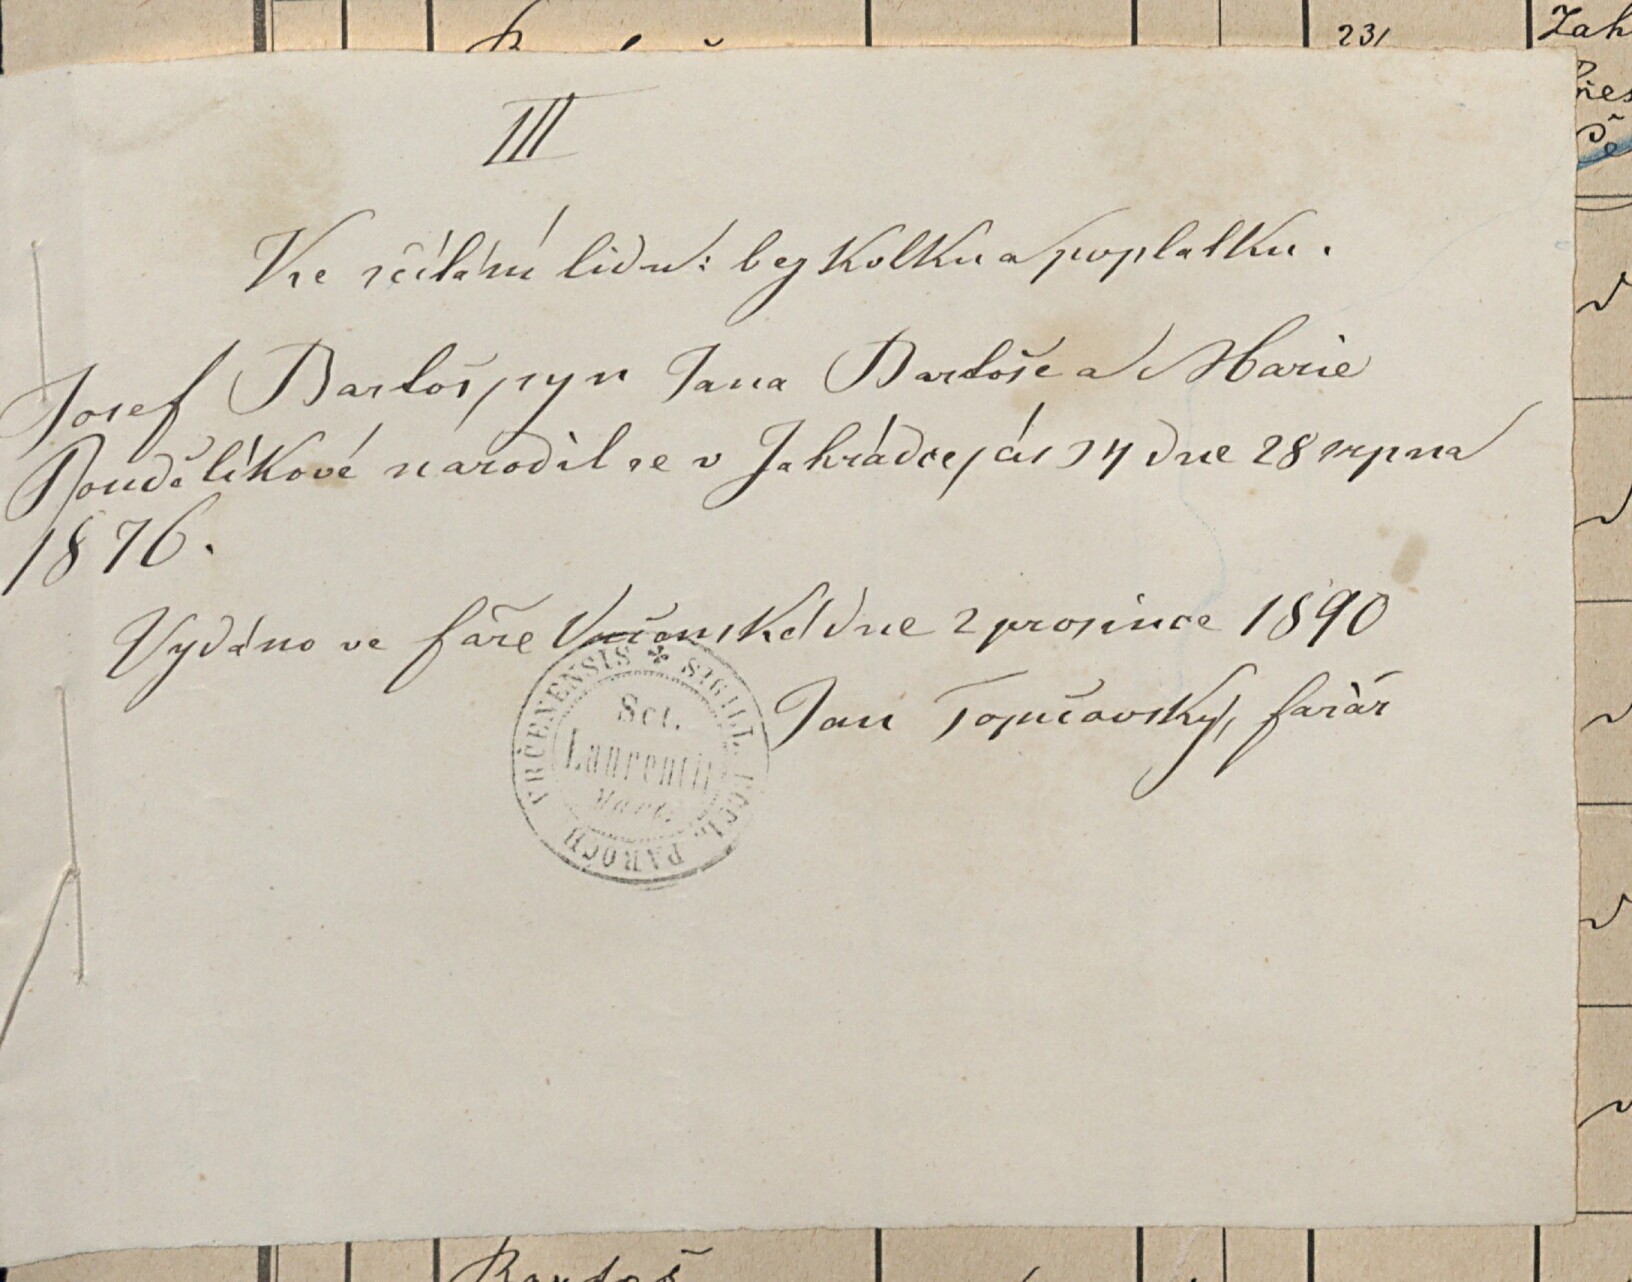 231
Zah
III
Ke sčítání lidu: bez kolku a poplatku.
Josef Bartoš, syn Jana Bartoše a Marie
Pondělíkové narodil se v Zahrádce, čís 34 dne 28 srpna
1876.
Vydáno ve faře Vrčenské dne 2 prosince 1890
Jan, farář
SIGILL. ECCL. PAROCH VRČENENSIS *
Sct.
Laurentii
Mart.
Bartoš